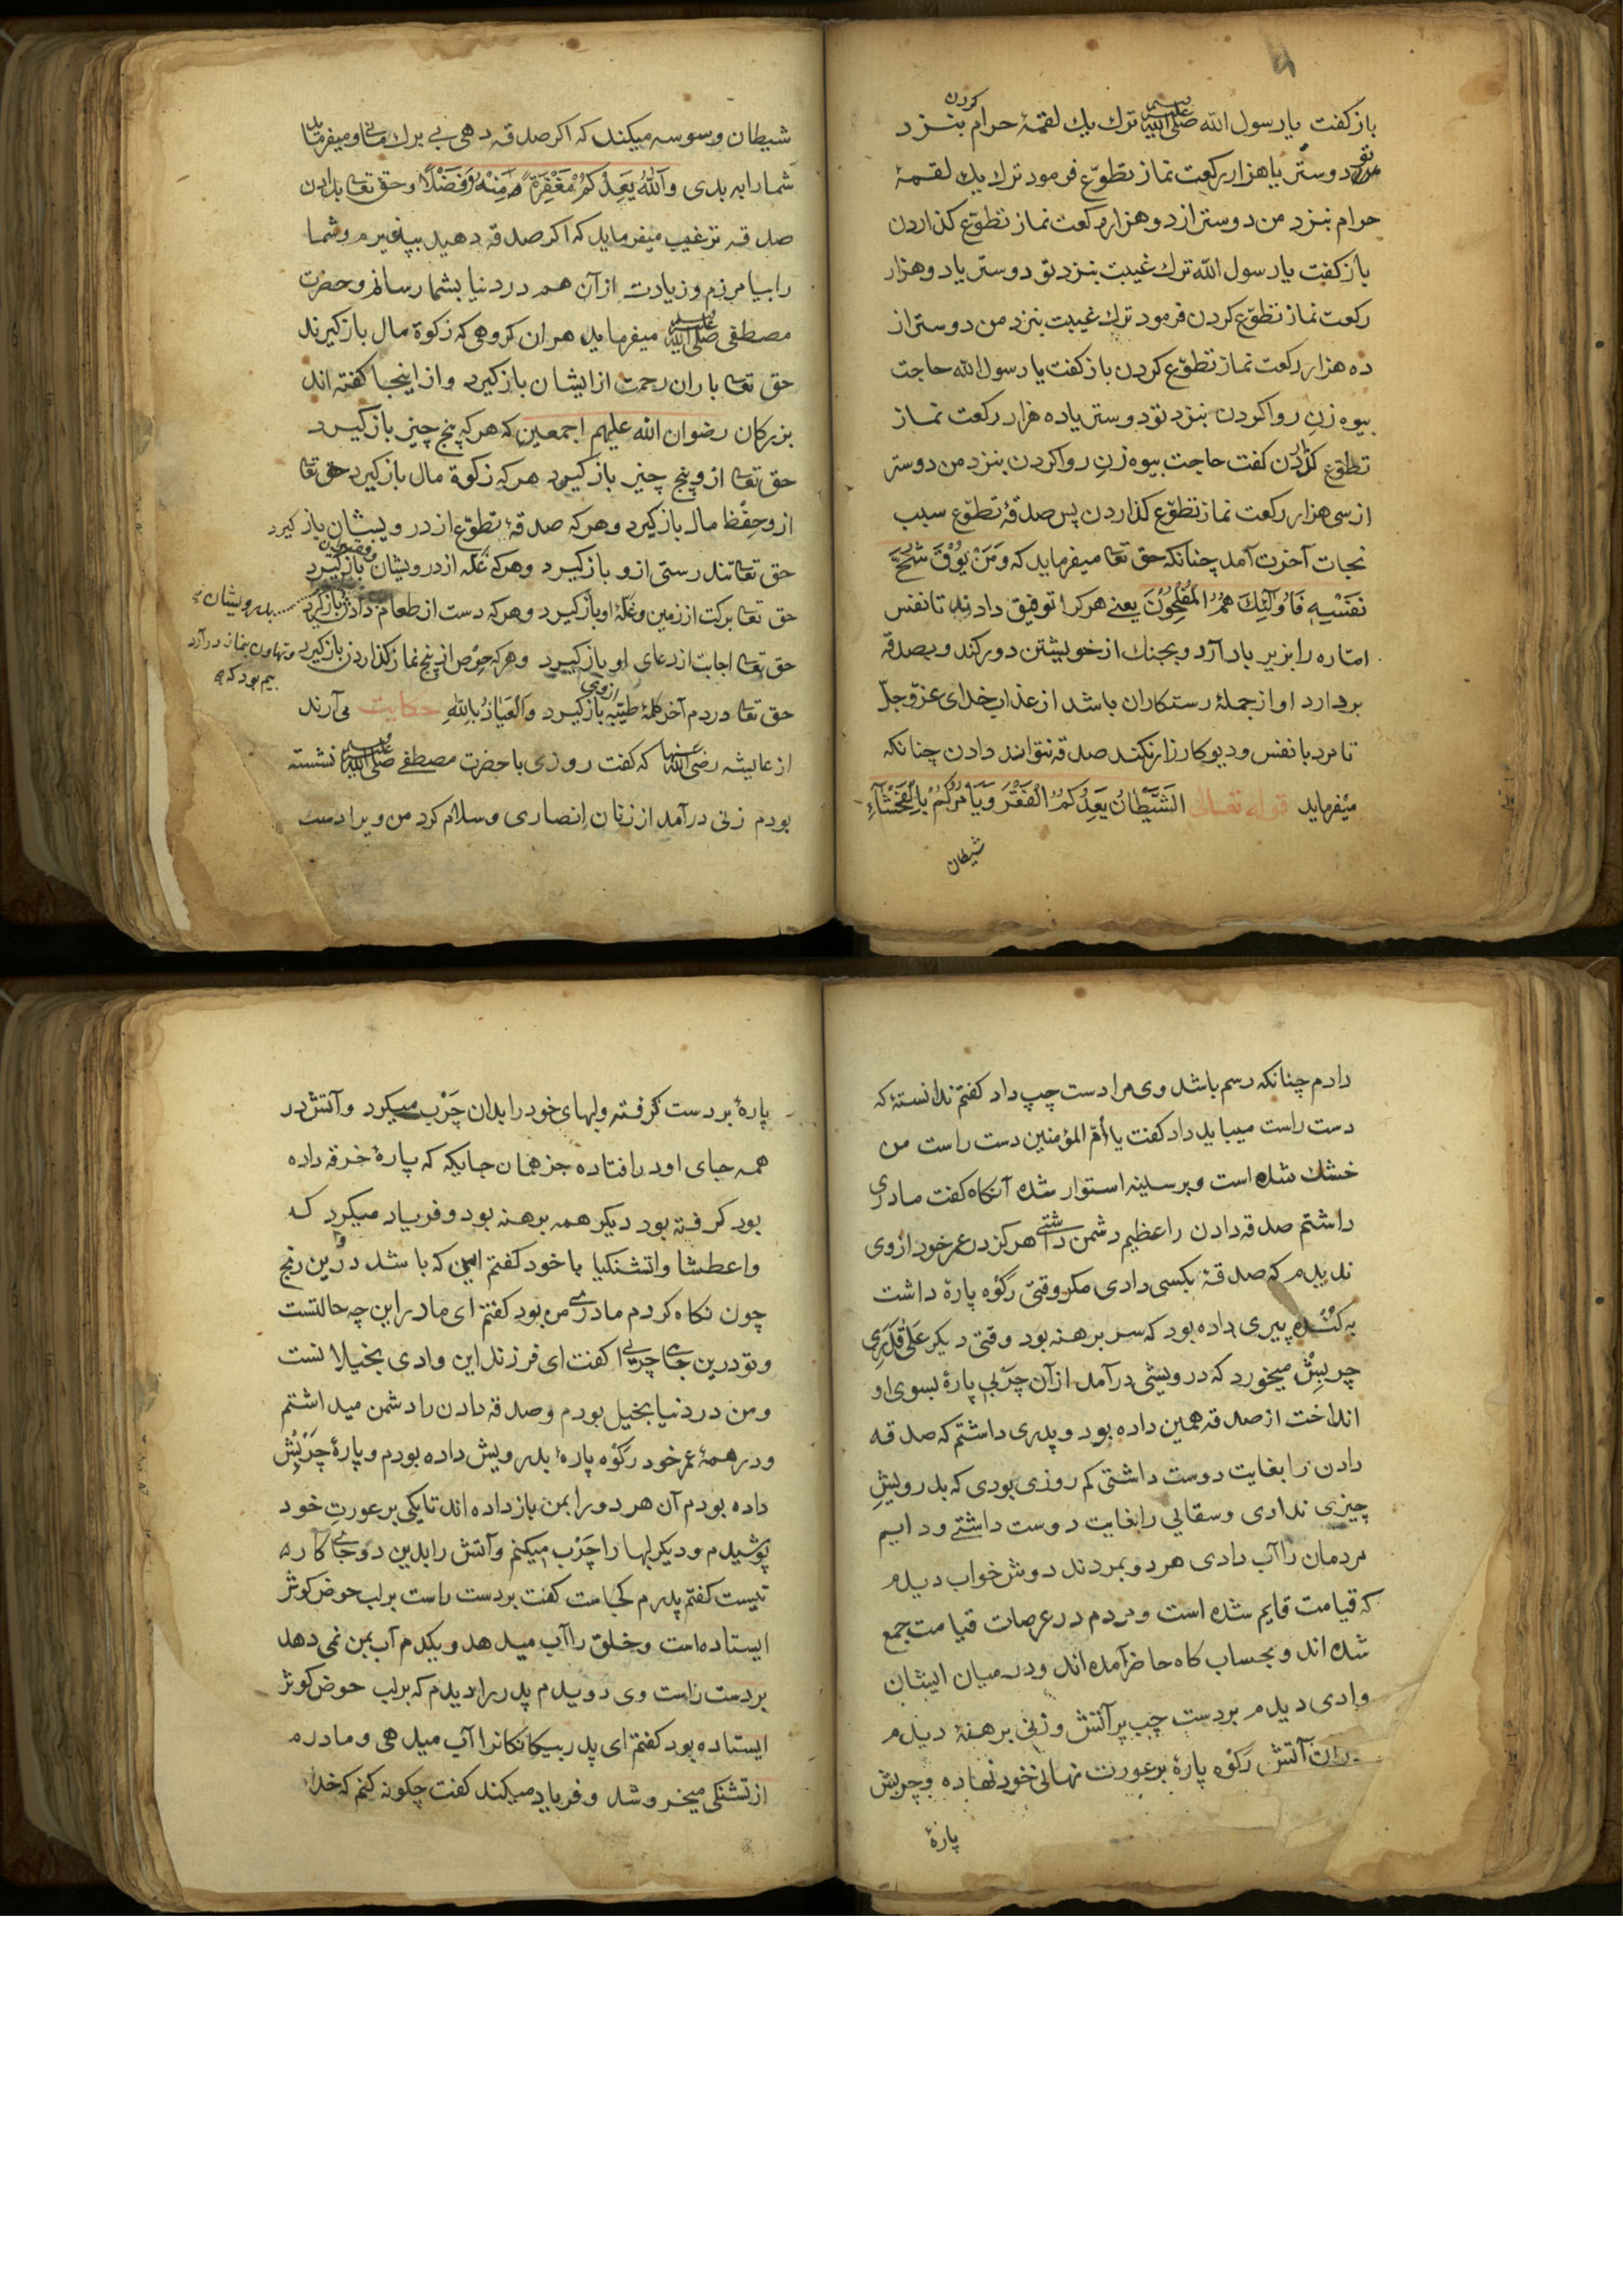 باز کفت یا رسول الله صلی الله علیه وسلم ترك یك لقمهٔ حرام کردن بنزد
تو دوستر یا هزار رکعت نماز تطوّع فرمود ترك یك لقمهٔ
حرام بنزد من دوستر از دو هزار رکعت نماز تطوّع کذاردن
باز کفت یا رسول الله ترك غیبت بنزد تو دوستر یا دو هزار
رکعت نماز تطوّع کردن فرمود ترك غیبت بنزد من دوستر از
ده هزار رکعت نماز تطوّع کردن باز کفت یا رسول الله حاجت
بیوه زنِ روا کردن بنزد تو دوستر یا ده هزار رکعت نماز
تطوّع کذاردن کفت حاجت بیوه زنِ روا کردن بنزد من دوستر
از سی هزار رکعت نماز تطوّع کذاردن پس صدقهٔ تطوّع سبب
نجات آخرت آمد چنانکه حق تعا میفرماید که وَمَنْ یُوْقَ شُحَّ
نَفْسِهِ فَاُولٰئِكَ هُمُ الْمُفْلِحُونَ یعنے هرکرا توفیق دادند تا نفس
امّاره را بزیر بار آرد و بجنك از خویشتن دور کند و بصدقه
بردارد او از جملهٔ رستکاران باشد از عذاب خدای عزّ و جلّ
تا مرد با نفس و دیو کارزار نکند صدقه نتواند دادن چنانکه
میفرماید قوله تعالی الشَّیْطَانُ یَعِدُکُمُ الْفَقْرَ وَیَأْمُرُکُمْ بِالْفَحْشَآءِ
شیطان
شیطان وسوسه میکند که اکر صدقه دهی بی برك مانی و میفرماید
شمارا به بدی وَاللهُ یَعِدُکُمْ مَغْفِرَةً مِنْهُ وَفَضْلًا و حق تعا بدادن
صدقه ترغیب میفرماید که اکر صدقه دهید بپذیرم و شما
را بیامرزم و زیادت از آن هم در دنیا بشما رسانم و حضرت
مصطفی صلی الله علیه وسلم میفرماید هر ان کروهی که زکوة مال باز کیرند
حق تعا باران رحمت از ایشان باز کیرد و از اینجا کفته اند
بزرکان رضوان الله علیهم اجمعین که هر که پنج چیز باز کیرد
حق تعا ازو پنج چیز باز کیرد هر که زکوة مال باز کیرد حق تعا
ازو حِفْظ مال باز کیرد و هر که صدقهٔ تطوّع از درویشان باز کیرد
حق تعا تندرستی ازو باز کیرد و هر که غلّه از درویشان باز کیرد
حق تعا برکت از زمین و غلّهٔ او باز کیرد و هر که دست از طعام دادن باز کیرد
بدرویشان
حق تعا اجابت از دعای او باز کیرد و هر که حِرْص از پنج نماز کذاردن باز کیرد
و تهاون بنماز درآرد
بیم بود که
حق تعا در دم آخر کلمهٔ طیّبه ازوی باز کیرد وَالْعَیَاذُ بِاللهِ حکایت می آرند
از عایشه رضی الله عنها که کفت روزی با حضرت مصطفے صلی الله علیه وسلم نشسته
بودم زنی درآمد از زنان اِنصاری و سلام کرد من ویرا دست
دادم چنانکه رسم باشد وی مرا دست چپ داد کفتم ندانستهٔ که
دست راست میباید داد کفت یا اُمّ المؤمنین دست راست من
خشك شده است و بر سینه استوار شده آنکاه کفت مادری
داشتم صدقه دادن را عظیم دشمن داشتے هرکز در عمر خود از وی
ندیدم که صدقهٔ بکسی دادی مکر وقتی رکوه پارهٔ داشت
به کنده پیری داده بود که سر برهنه بود وقتی دیکر عَلٰی قَدَرِی
چربش میخورد که درویشی درآمد از آن چَرْبی پارهٔ بسوی او
انداخت از صدقه همین داده بود و پدری داشتم که صدقه
دادن را بغایت دوست داشتی کم روزی بودی که بدرویش
چیزی ندادی و سقایی را بغایت دوست داشتے و دایم
مردمان را آب دادی هر دو بمردند دوش خواب دیدم
که قیامت قایم شده است و مردم در عرصات قیامت جمع
شده اند و بحساب کاه حاضر آمده اند و در میان ایشان
وادی دیدم بر دست چپ پر آتش و زنی برهنهٔ دیدم
در ان آتش رَکْوه پارهٔ بر عورت نهانی خود نهاده و چربش
پارهٔ
پارهٔ بر دست کرفته و لبهای خود را بدان چَرْب میکرد و آتش در
همه جای او در افتاده جز همان جایکه که پارهٔ خرقه داده
بود کرفته بود دیکر همه برهنه بود و فریاد میکرد که
واعطشا واتشنکیا با خود کفتم این که باشد درین رنج
چون نکاه کردم مادرِ من بود کفتم ای مادر این چه حالتست
و تو درین جای چرایی کفت ای فرزند این وادی بخیلانست
و من در دنیا بخیل بودم و صدقه دادن را دشمن میداشتم
و در همهٔ عمر خود رَکْوه پارهٔ بدرویش داده بودم و پارهٔ چَرْبِش
داده بودم آن هر دو را بمن باز داده اند تا یکی بر عورتِ خود
پوشیدم و دیکر لبها را چَرْب میکنم و آتش را بدین دو جای کار
نیست کفتم پدرم کجاست کفت بر دست راست بر لب حوض کوثر
ایستاده است و خلق را آب میدهد و یکدم آب بمن نمی دهد
بر دست راست وی دویدم پدر را دیدم که بر لب حوض کوثر
ایستاده بود کفتم ای پدر بیکانکانرا آب میدهی و مادرم
از تشنکی میخروشد و فریاد میکند کفت چکونه کنم که خدا